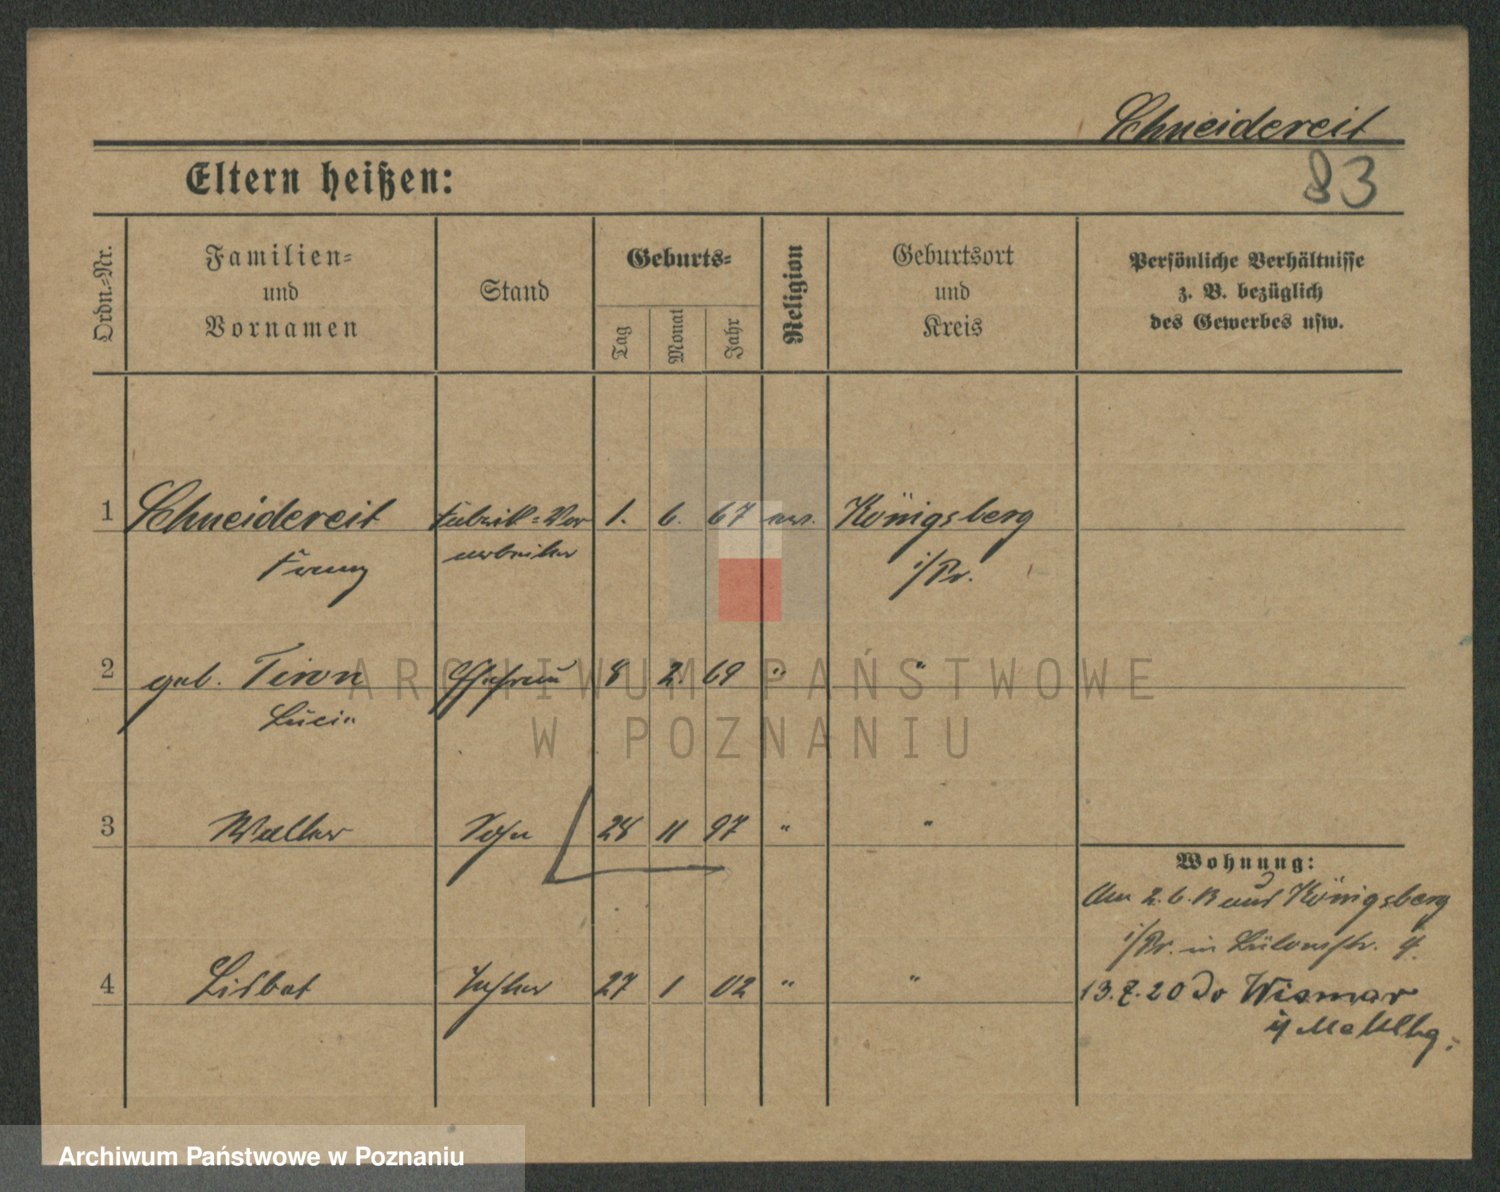 Schneidereit
83
Eltern heißen:
Ordn.-Nr.
Familien-
und
Vornamen
Stand
Geburts-
Tag
Monat
Jahr
Religion
Geburtsort
und
Kreis
Persönliche Verhältnisse
z. B. bezüglich
des Gewerbes usw.
1 Schneidereit Fabrik-Vor 1. 6. 67 ev. Königsberg
Franz arbeiter i/Pr.
2 geb. Tiron Ehefrau 8 2. 69 " "
Lucia
3 Walter Sohn 28 11 97 " "
Wohnung:
Am 2.6.13 aus Königsberg
i/Pr. in Bülowstr. 4.
4 Lisbet Tochter 27 1 02 " "
13.7.20 do Wismar
i/ Meklbg.
ARCHIWUM PAŃSTWOWE
W POZNANIU
Archiwum Państwowe w Poznaniu